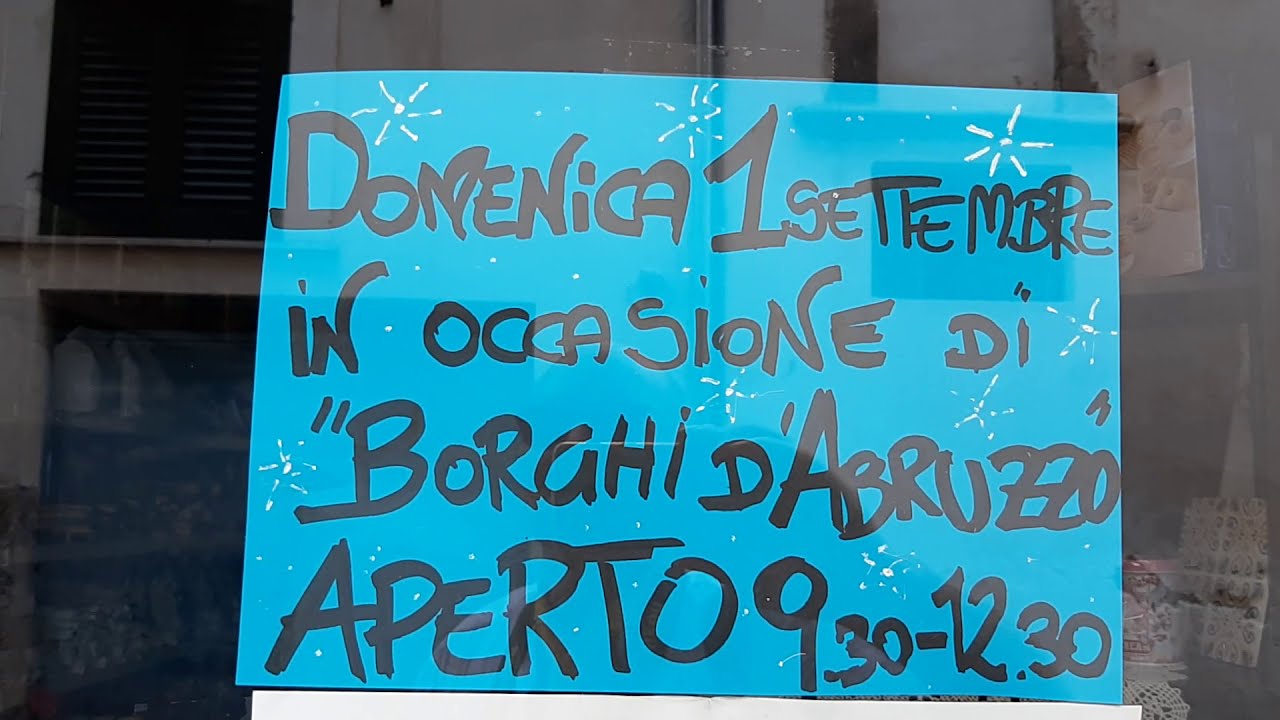 DOMENICA 1 SETTEMBRE
IN OCCASIONE DI
"BORGHI D'ABRUZZO"
APERTO 9.30-12.30